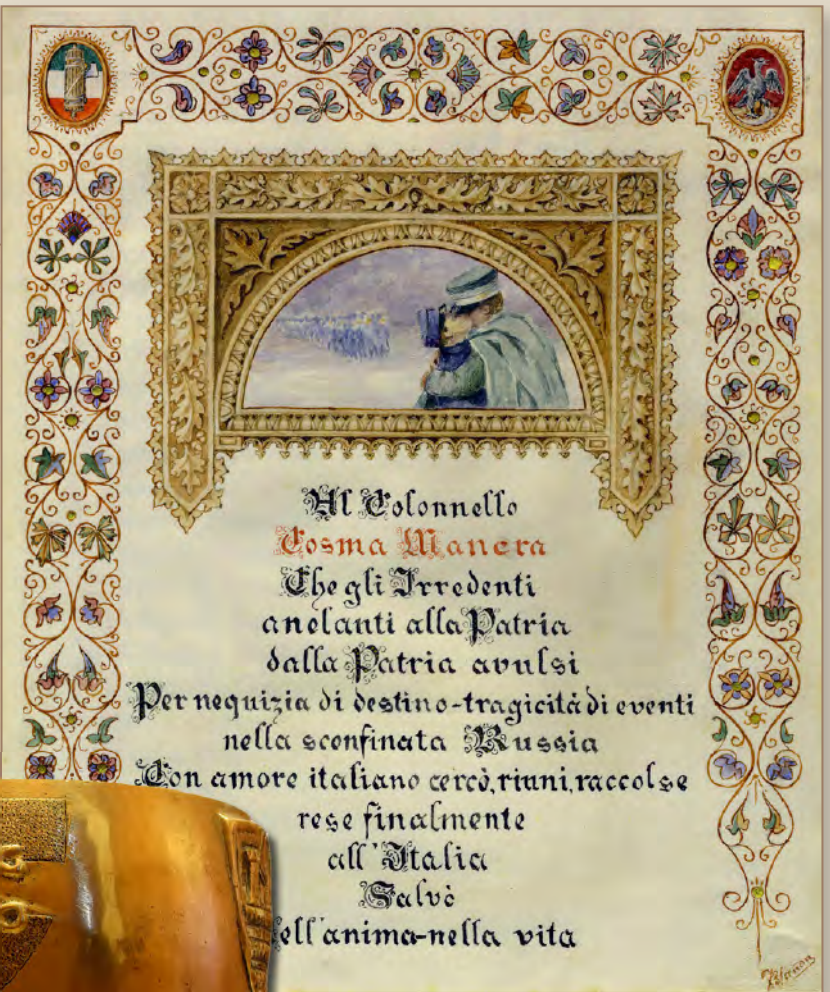 Al Colonnello
Cosma Manera
Che gli Irredenti
anelanti alla Patria
dalla Patria avulsi
Per nequizia di destino-tragicità di eventi
nella sconfinata Russia
Con amore italiano cercò, riunì, raccolse
rese finalmente
all'Italia
Salvò
ell'anima-nella vita